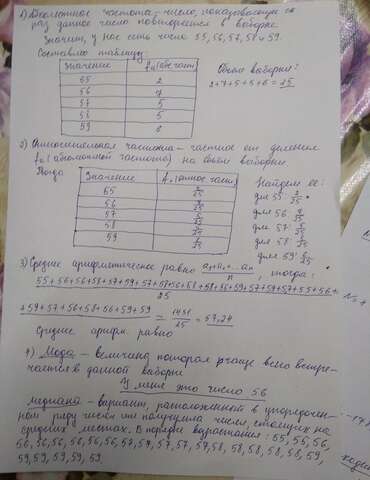 1) Абсолютная частота, число, показывающее ск.
раз данное число повторяется в выборке.
Значит, у нас есть числа 55, 56, 57, 58 и 59.
Составляю таблицу:
Значение
55 2
56 7
57 5
58 5
59 6
Объем выборки:
2+7+5+5+6=25
2) Относительная частота - частное от деления
(абсолютной частоты) на объем выборки
Тогда
Значение
55 2/25
56 7/25
57 5/25
58 5/25
59 6/25
Найдем ее:
для 55: 2/25
для 56 7/25
для 57: 5/25
для 58: 5/25
для 59: 6/25
3) Среднее арифметическое равно a₁+a₂+...aₙ/n, тогда:
25
+59+57+56+58+56+59+59 = 1431/25 = 57,24
Среднее арифм. равно
4) Мода - величина которая чаще всего встре-
чается в данной выборке
У меня это число 56
медиана - вариант, расположенной в упорядочен-
ном ряду чисел или полусумма чисел, стоящих на
средних местах. В порядке возрастания: 55, 55, 56,
56, 56, 56, 56, 56, 56, 57, 57, 57, 57, 57, 58, 58, 58, 58, 58, 59,
59, 59, 59, 59, 59.